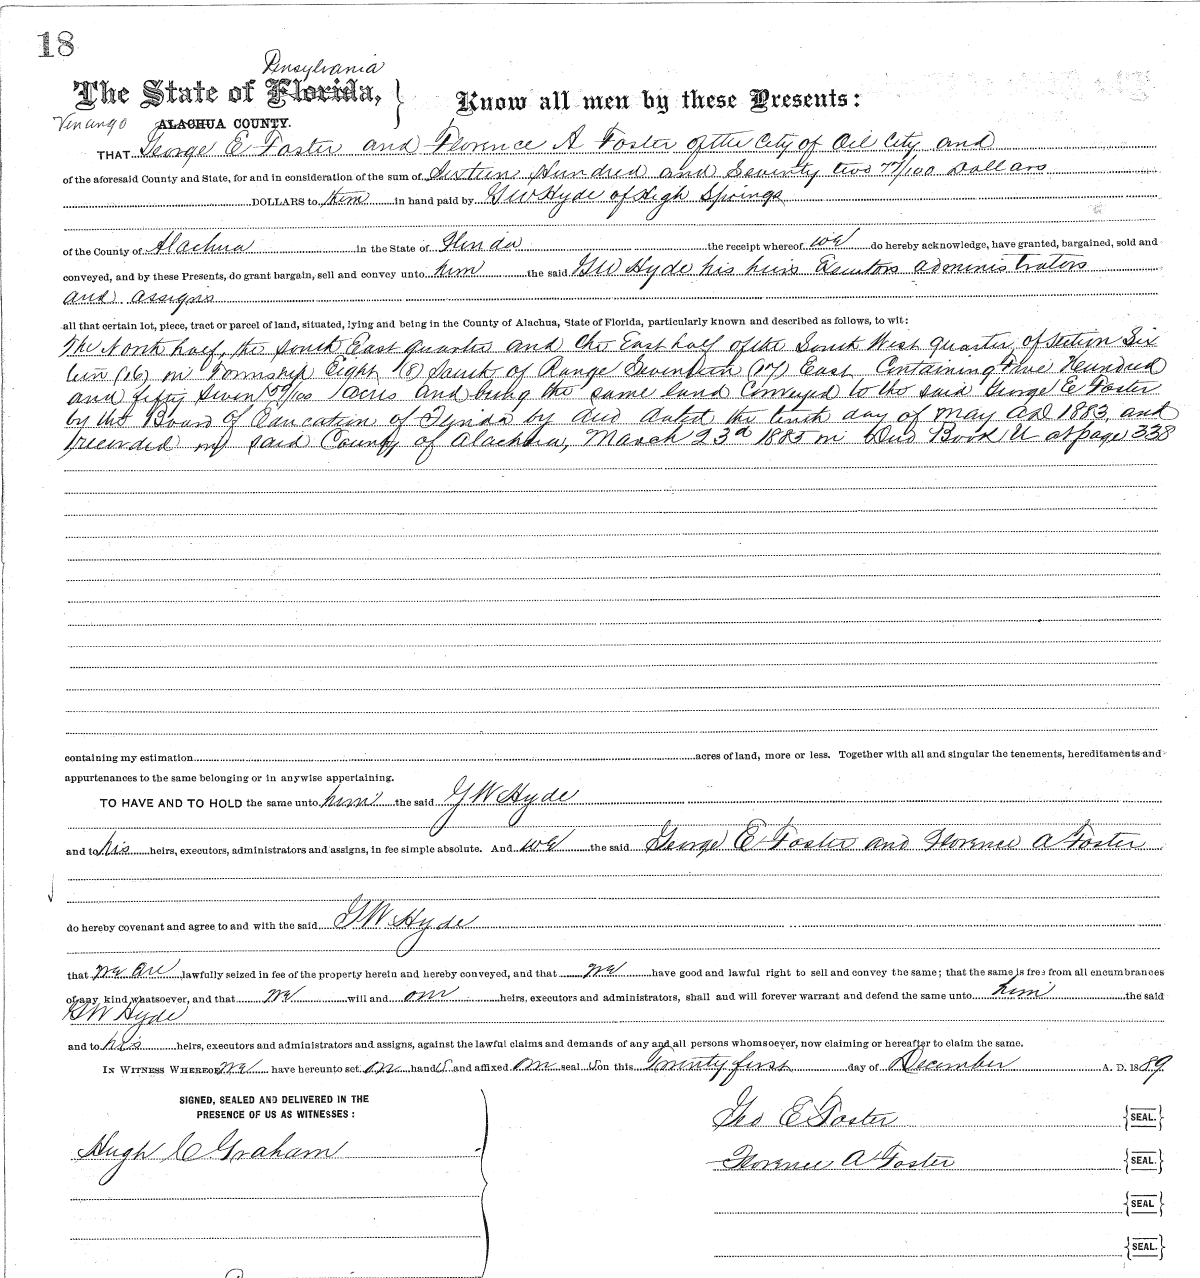 18
Pensylvania
The State of Florida,
Know all men by these Presents:
Venango ALACHUA COUNTY.
THAT George E Foster and Florence A Foster of the City of Oil City and
of the aforesaid County and State, for and in consideration of the sum of Sixteen Hundred and Seventy two 77/100 Dollars
DOLLARS to them in hand paid by G W Hyde of High Springs
of the County of Alachua in the State of Florida the receipt whereof we do hereby acknowledge, have granted, bargained, sold and
conveyed, and by these Presents, do grant bargain, sell and convey unto him the said G W Hyde his heirs Executors administrators
and assigns
all that certain lot, piece, tract or parcel of land, situated, lying and being in the County of Alachua, State of Florida, particularly known and described as follows, to wit:
The North half, the South East quarter and the East half of the South West quarter, of Section Six
teen (16) in Township Eight (8) South of Range Seventeen (17) East Containing Five Hundred
and fifty Seven 59/100 acres and being the same land Conveyed to the said George E Foster
by the Board of Education of Florida by deed dated the tenth day of May AD 1883 and
recorded in said County of Alachua, March 23d 1885 in Deed Book U at page 338
containing my estimation acres of land, more or less. Together with all and singular the tenements, hereditaments and
appurtenances to the same belonging or in anywise appertaining.
TO HAVE AND TO HOLD the same unto him the said G W Hyde
and to his heirs, executors, administrators and assigns, in fee simple absolute. And we the said George E Foster and Florence A Foster
do hereby covenant and agree to and with the said G W Hyde
that we are lawfully seized in fee of the property herein and hereby conveyed, and that we have good and lawful right to sell and convey the same; that the same is free from all encumbrances
of any kind whatsoever, and that we will and our heirs, executors and administrators, shall and will forever warrant and defend the same unto him the said
G W Hyde
and to his heirs, executors and administrators and assigns, against the lawful claims and demands of any and all persons whomsoever, now claiming or hereafter to claim the same.
IN WITNESS WHEREOF, we have hereunto set our hands and affixed our seal s on this Twenty first day of December A. D. 1889
SIGNED, SEALED AND DELIVERED IN THE
PRESENCE OF US AS WITNESSES:
Geo E Foster {SEAL.}
Hugh C Graham
Florence A Foster {SEAL.}
{SEAL}
{SEAL.}